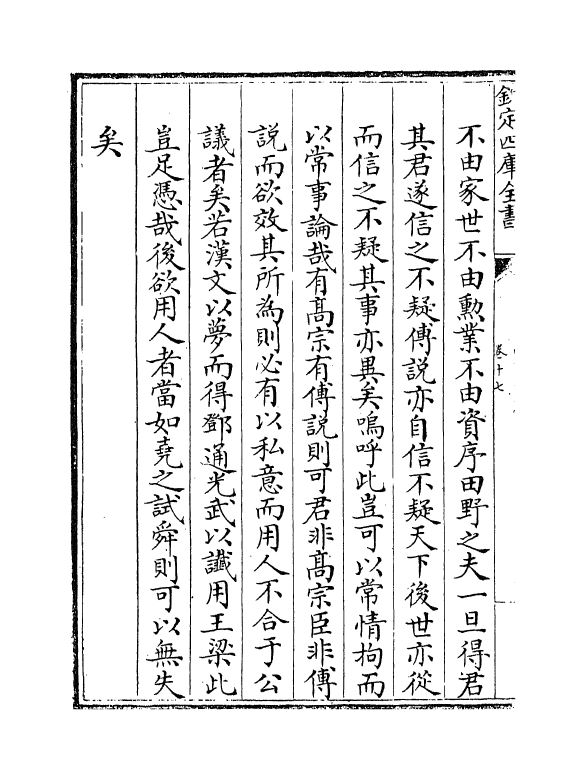 欽定四庫全書
卷十七
不由家世不由勲業不由資序田野之夫一旦得君
其君遂信之不疑傅説亦自信不疑天下後世亦從
而信之不疑其事亦異矣嗚呼此豈可以常情拘而
以常事論哉有髙宗有傅説則可君非髙宗臣非傅
説而欲效其所為則必有以私意而用人不合于公
議者矣若漢文以夢而得鄧通光武以讖用王梁此
豈足憑哉後欲用人者當如堯之試舜則可以無失
矣